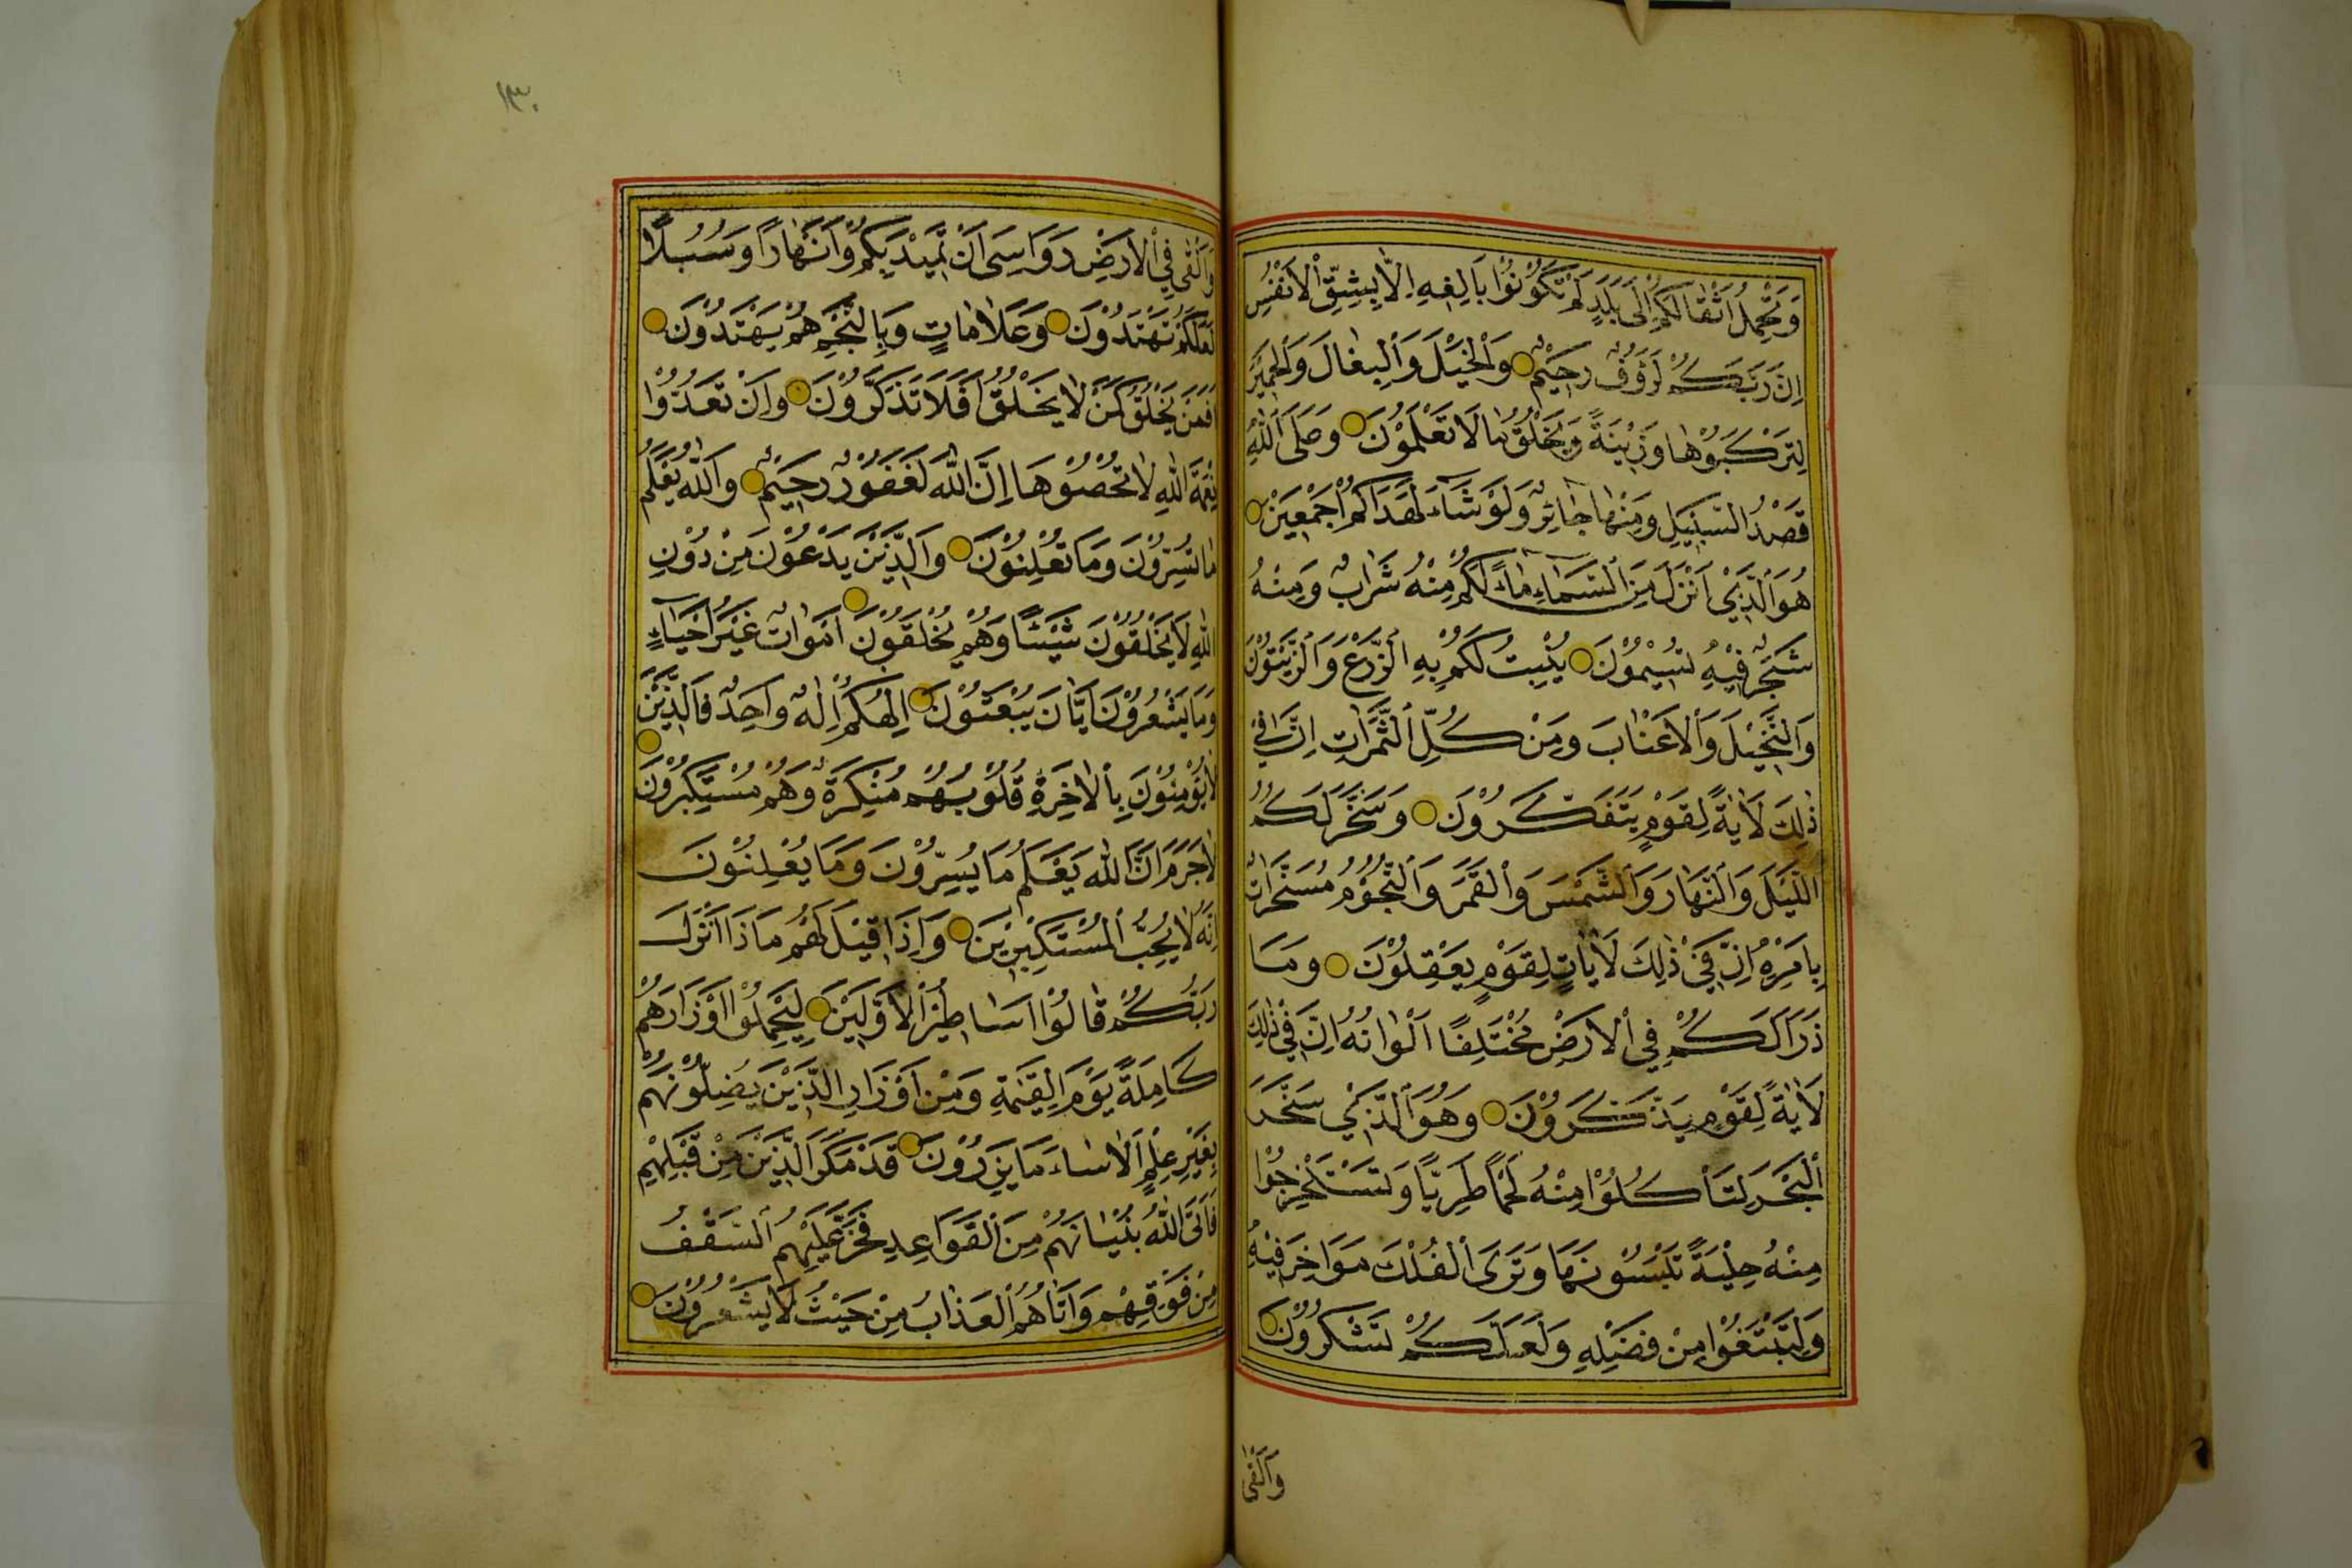 وَتَحْمِلُ اَثْقَالَكُمْ اِلٰى بَلَدٍ لَمْ تَكُوْنُوْا بَالِغِيهِ اِلَّا بِشِقِّ الْاَنْفُسِ
اِنَّ رَبَّكُمْ لَرَؤُوْفٌ رَحِيْمٌ وَالْخَيْلَ وَالْبِغَالَ وَالْحَمِيْرَ
لِتَرْكَبُوْهَا وَزِيْنَةً وَيَخْلُقُ مَا لَا تَعْلَمُوْنَ وَعَلَى اللّٰهِ
قَصْدُ السَّبِيْلِ وَمِنْهَا جَائِرٌ وَلَوْ شَاءَ لَهَدَاكُمْ اَجْمَعِيْنَ
هُوَ الَّذِيْ اَنْزَلَ مِنَ السَّمَاءِ مَاءً لَكُمْ مِنْهُ شَرَابٌ وَمِنْهُ
شَجَرٌ فِيْهِ تُسِيْمُوْنَ يُنْبِتُ لَكُمْ بِهِ الزَّرْعَ وَالزَّيْتُوْنَ
وَالنَّخِيْلَ وَالْاَعْنَابَ وَمِنْ كُلِّ الثَّمَرَاتِ اِنَّ فِي
ذٰلِكَ لَاٰيَةً لِقَوْمٍ يَتَفَكَّرُوْنَ وَسَخَّرَ لَكُمُ
اللَّيْلَ وَالنَّهَارَ وَالشَّمْسَ وَالْقَمَرَ وَالنُّجُوْمُ مُسَخَّرَاتٌ
بِاَمْرِهِ اِنَّ فِيْ ذٰلِكَ لَاٰيَاتٍ لِقَوْمٍ يَعْقِلُوْنَ وَمَا
ذَرَاَ لَكُمْ فِي الْاَرْضِ مُخْتَلِفًا اَلْوَانُهُ اِنَّ فِيْ ذٰلِكَ
لَاٰيَةً لِقَوْمٍ يَذَّكَّرُوْنَ وَهُوَ الَّذِيْ سَخَّرَ
الْبَحْرَ لِتَاْكُلُوْا مِنْهُ لَحْمًا طَرِيًّا وَتَسْتَخْرِجُوْا
مِنْهُ حِلْيَةً تَلْبَسُوْنَهَا وَتَرَى الْفُلْكَ مَوَاخِرَ فِيْهِ
وَلِتَبْتَغُوْا مِنْ فَضْلِهِ وَلَعَلَّكُمْ تَشْكُرُوْنَ
وَاَلْقٰى
١٣٠
وَاَلْقٰى فِي الْاَرْضِ رَوَاسِيَ اَنْ تَمِيْدَ بِكُمْ وَاَنْهَارًا وَسُبُلًا
لَعَلَّكُمْ تَهْتَدُوْنَ وَعَلَامَاتٍ وَبِالنَّجْمِ هُمْ يَهْتَدُوْنَ
اَفَمَنْ يَخْلُقُ كَمَنْ لَا يَخْلُقُ اَفَلَا تَذَكَّرُوْنَ وَاِنْ تَعُدُّوْا
نِعْمَةَ اللّٰهِ لَا تُحْصُوْهَا اِنَّ اللّٰهَ لَغَفُوْرٌ رَحِيْمٌ وَاللّٰهُ يَعْلَمُ
مَا تُسِرُّوْنَ وَمَا تُعْلِنُوْنَ وَالَّذِيْنَ يَدْعُوْنَ مِنْ دُوْنِ
اللّٰهِ لَا يَخْلُقُوْنَ شَيْئًا وَهُمْ يُخْلَقُوْنَ اَمْوَاتٌ غَيْرُ اَحْيَاءٍ
وَمَا يَشْعُرُوْنَ اَيَّانَ يُبْعَثُوْنَ اِلٰهُكُمْ اِلٰهٌ وَاحِدٌ فَالَّذِيْنَ
لَا يُؤْمِنُوْنَ بِالْاٰخِرَةِ قُلُوْبُهُمْ مُنْكِرَةٌ وَهُمْ مُسْتَكْبِرُوْنَ
لَا جَرَمَ اَنَّ اللّٰهَ يَعْلَمُ مَا يُسِرُّوْنَ وَمَا يُعْلِنُوْنَ
اِنَّهُ لَا يُحِبُّ الْمُسْتَكْبِرِيْنَ وَاِذَا قِيْلَ لَهُمْ مَاذَا اَنْزَلَ
رَبُّكُمْ قَالُوْا اَسَاطِيْرُ الْاَوَّلِيْنَ لِيَحْمِلُوْا اَوْزَارَهُمْ
كَامِلَةً يَوْمَ الْقِيٰمَةِ وَمِنْ اَوْزَارِ الَّذِيْنَ يُضِلُّوْنَهُمْ
بِغَيْرِ عِلْمٍ اَلَا سَاءَ مَا يَزِرُوْنَ قَدْ مَكَرَ الَّذِيْنَ مِنْ قَبْلِهِمْ
فَاَتَى اللّٰهُ بُنْيَانَهُمْ مِنَ الْقَوَاعِدِ فَخَرَّ عَلَيْهِمُ السَّقْفُ
مِنْ فَوْقِهِمْ وَاَتَاهُمُ الْعَذَابُ مِنْ حَيْثُ لَا يَشْعُرُوْنَ